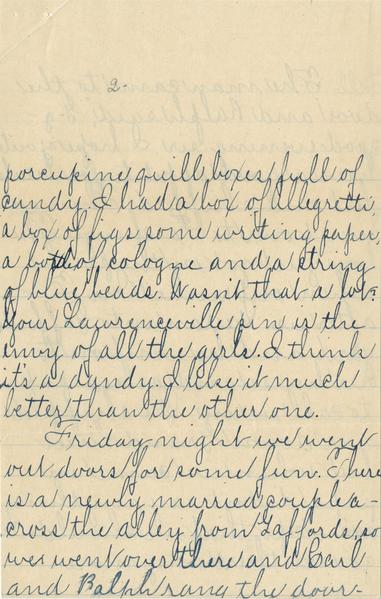 2.
porcupine quill boxes full of
candy. I had a box of Allegretti,
a box of figs some writing paper,
a bottle of cologne and a string
of blue beads. Wasn't that a lot?
Your Lawrenceville pin is the
envy of all the girls. I think
it's a dyndy. I like it much
better than the other one.
Friday night we went
out doors for some fun. There
is a newly married couple a-
cross the alley from Gaffords, so
we went over there and Carl
and Ralph rang the door-